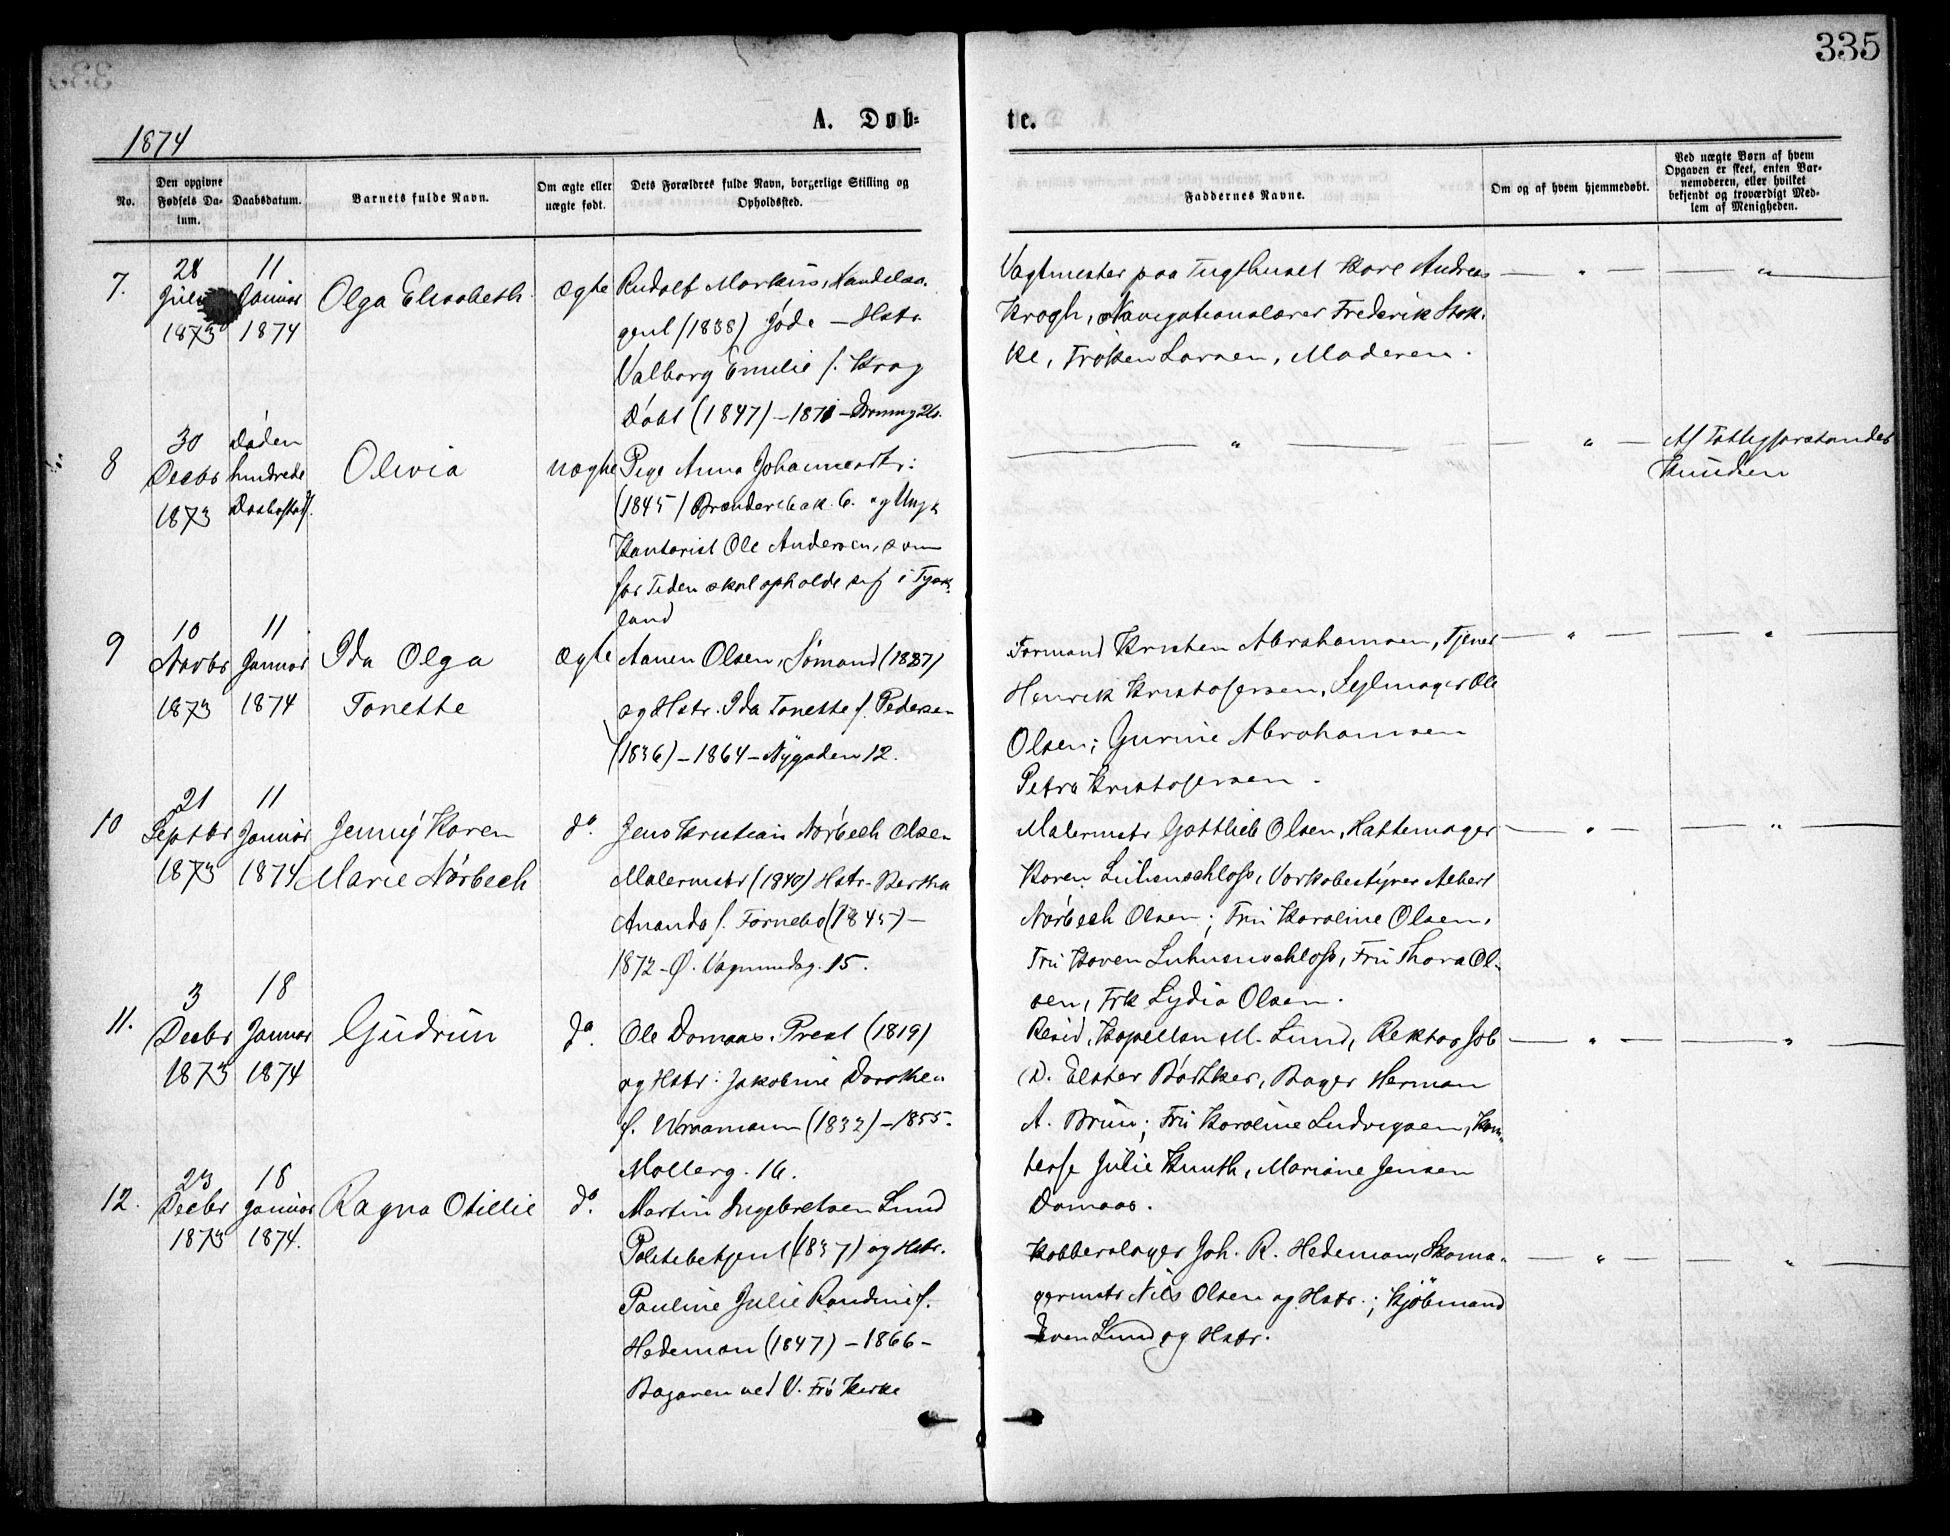 335
A. Døb-
te.
1874
No.
Den opgivne Fødsels Da-tum.
Daabsdatum.
Barnets fulde Navn.
Om ægte eller uægte født.
Dets Forældres fulde Navn, borgerlige Stilling og Opholdssted.
Faddernes Navne.
Om og af hvem hjemmedøbt.
Ved uægte Børn af hvem Opgaven er skeet, enten Bar-nemoderen, eller hvilket bekjendt og troværdigt Med-lem af Menigheden.
7.
28
1873
11
Januar
1874
Olga Elisabeth
ægte
Rudolf Markus, Handelsa-
gent (1838) Jøde – Hstr.
Valborg Emilie f. Krag
Døbt (1847) – 1871 –
Vagtmester paa Tugthuset Karl Andreas
Krogh, Navigationslærer Frederik Stok-
ke, Frøken Larsen, Moderen.
8
30
Decbr
1873
Døden
hindrede
Olivia
uægte
Pige Anna Johannesdtr:
(1845)
Kontorist Ole Andersen, som
for Tiden skal opholde sig i Tysk-
land
Knudsen
9
10
Novbr
1873
11
Januar
1874
Ida Olga
Tonette
ægte
Aanen Olsen, Sømand (1837)
og Hstr. Ida Tonette f. Pedersen
(1836) – 1864 – Nygaden 12.
Formand Kristen Abrahamsen, Tjener
Henrik Kristofersen, Seilmager Ole
Olsen; Gurine Abrahamsen
Petra Kristofersen.
10
21
Septbr
1873
11
Januar
1874
Jenny Karen
Marie Nørbech
do.
Jens Kristian Nørbech Olsen
Malermstr (1840) Hstr. Bertha
Ananda f. Fornebo (1845) –
1872 – Ø. Vognmandsg. 15.
Malermstr Gottlieb Olsen, Hattemager
Nørbech Olsen; Fru Karoline Olsen,
Fru Thora Ol-
sen, Frk Lydia Olsen.
11.
3
Decbr
1873
18
Januar
1874
Gudrun
do.
Ole Domaas, Prest (1819)
og Hstr. Jakobine Dorothea
f. Wraamann (1832) – 1855.
Møllerg. 16.
Resid. Kapellan M. Lund, Rektor Job
D. Elster Bøtker, Bager Herman
A. Brun; Fru Karoline Ludvigsen, Kom-
tesse Julie Knuth, Mariane Jensen
Domaas.
12.
23
Decbr
1873
18
Januar
1874.
Ragna Otielie
do.
Martin Ingebretsen Lund
Politibetjent (1837) og Hstr.
Pauline Julie Randine f.
Hedeman (1847) – 1866 –
Bazaren ved V. Frs Kirke
Kobberslager Joh. R. Hedeman, Skoma-
germstr Nils Olsen og Hstr.; Kjøbmand
Even Lund og Hstr.